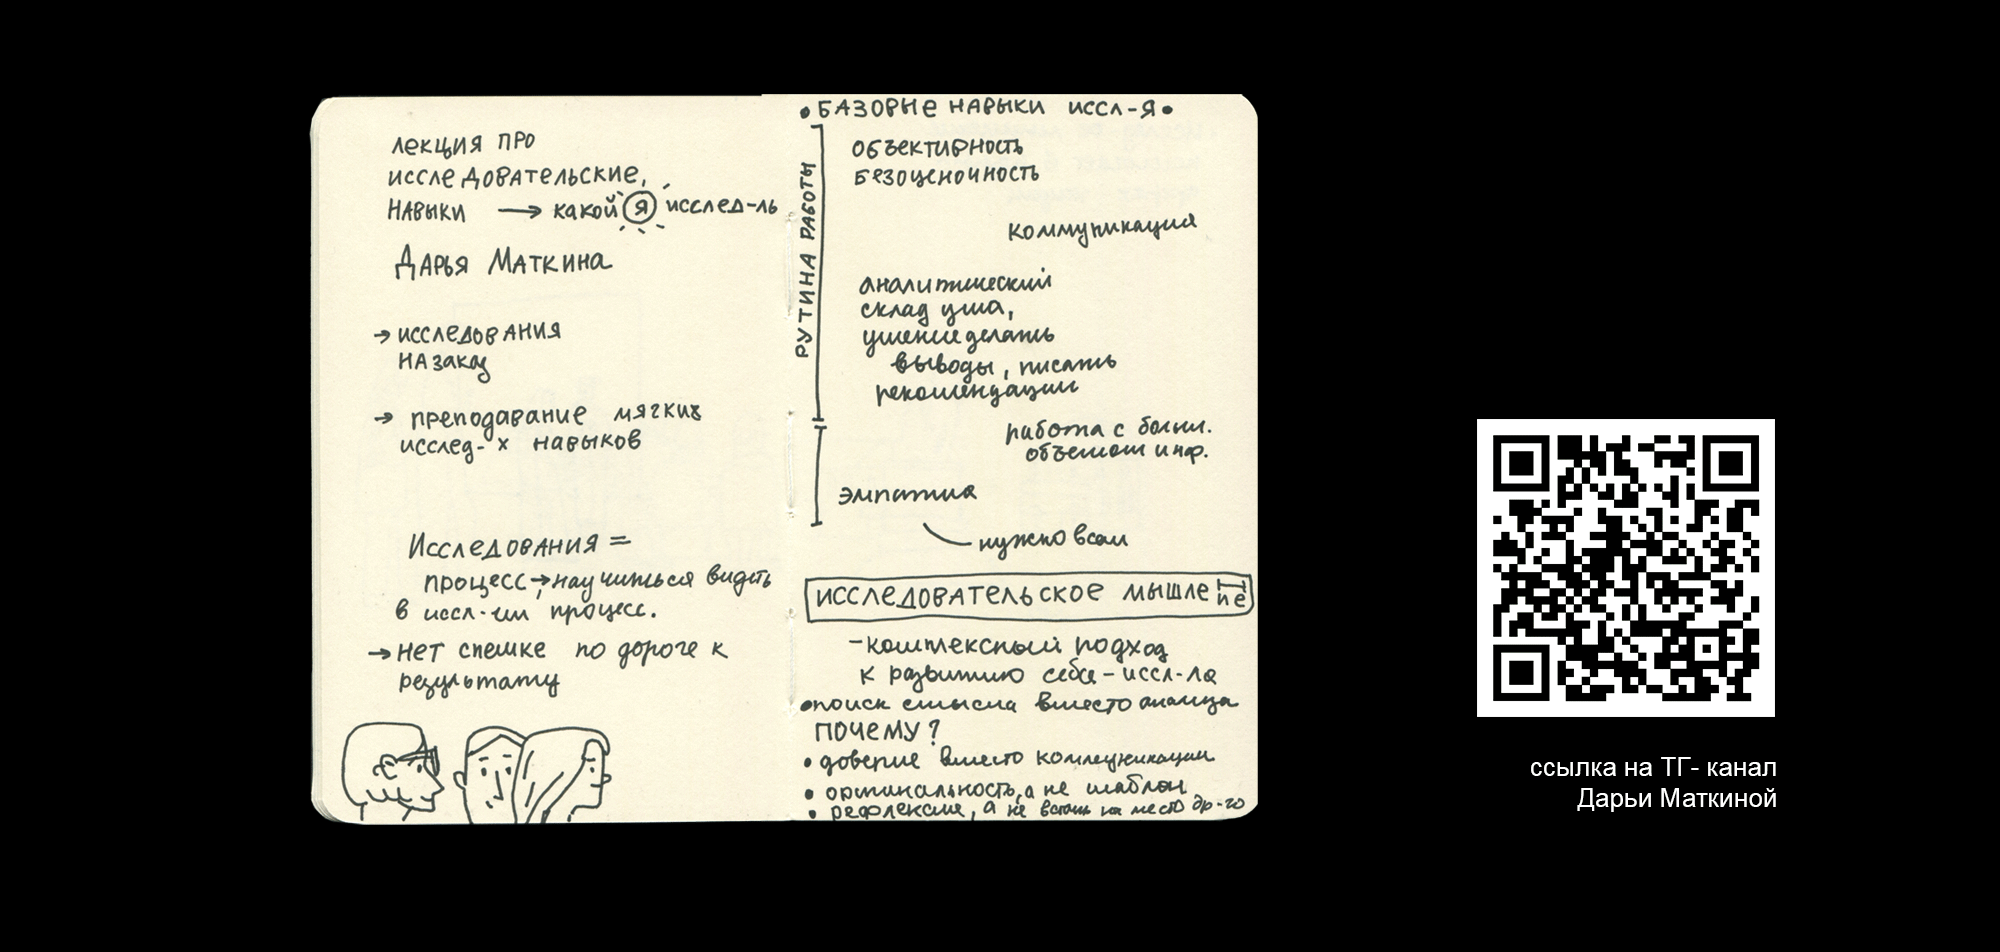 лекция про
исследовательские
навыки → какой я исслед-ль
Дарья Маткина
→ исследования
на заказ
→ преподавание мягких
исслед-х навыков
Исследования =
процесс → научиться видеть
в иссл-ии процесс.
→ нет спешке по дороге к
результату
• БАЗОВЫЕ НАВЫКИ ИССЛ-Я •
РУТИНА РАБОТЫ
объективность
безоценочность
коммуникация
аналитический
склад ума,
умение делать
выводы, писать
рекомендации
работа с больш.
объемом инф.
эмпатия
нужно всем
исследовательское мышление
- комплексный подход
к развитию себя - иссл-ля
• поиск смысла вместо анализа
ПОЧЕМУ?
• доверие вместо коммуникации
• оригинальность, а не шаблон
• рефлексия, а не встать на место др-го
ссылка на ТГ- канал
Дарьи Маткиной